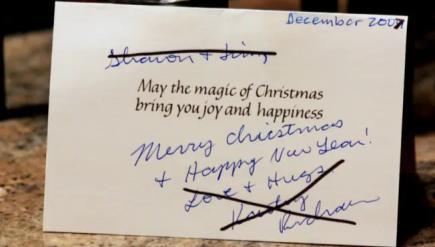 December 200
Sharon +
May the magic of Christmas
bring you joy and happiness
Merry Christmas
+ Happy New Year!
Love + Hugs